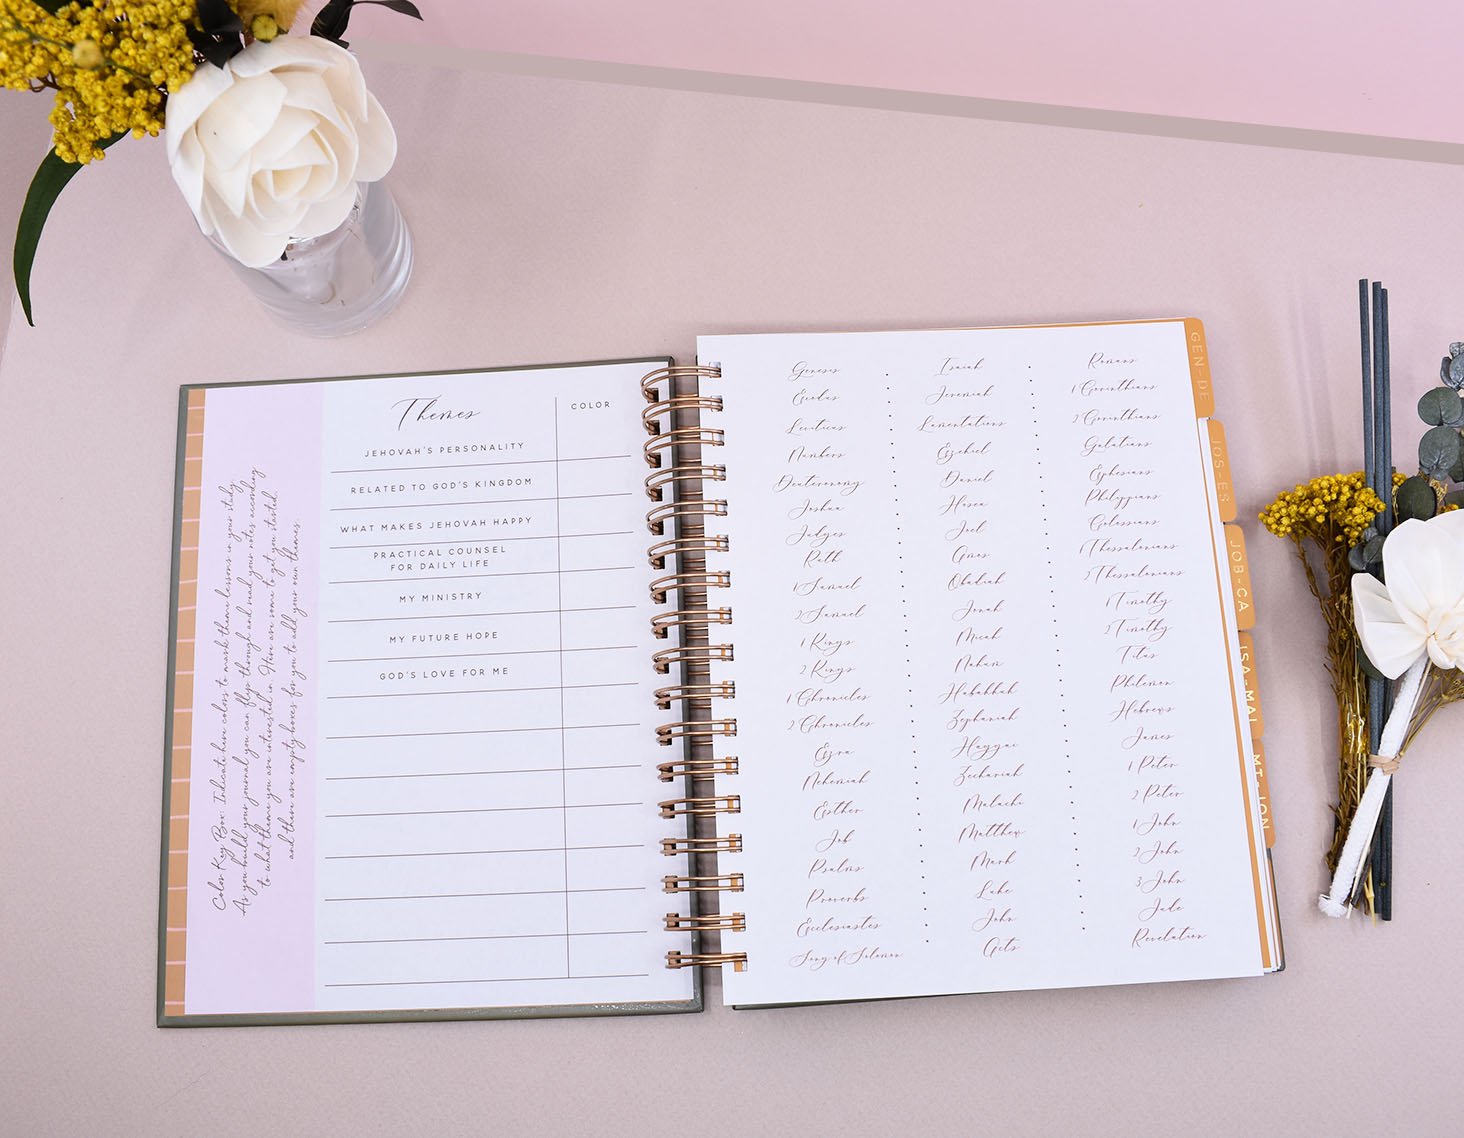 Color Key Box: Indicate have colors to mark theme lessons in your study.
As you build your journal you can flip through and read your notes according
to what theme you are interested in. Here are some to get you started,
and there are empty boxes for you to add your own themes.
Themes
COLOR
JEHOVAH'S PERSONALITY
RELATED TO GOD'S KINGDOM
WHAT MAKES JEHOVAH HAPPY
PRACTICAL COUNSEL
FOR DAILY LIFE
MY MINISTRY
MY FUTURE HOPE
GOD'S LOVE FOR ME
Genesis
Exodus
Leviticus
Numbers
Deuteronomy
Joshua
Judges
Ruth
1 Samuel
2 Samuel
1 Kings
2 Kings
1 Chronicles
2 Chronicles
Ezra
Nehemiah
Esther
Job
Psalms
Proverbs
Ecclesiastes
Song of Solomon
Isaiah
Jeremiah
Lamentations
Ezekiel
Daniel
Hosea
Joel
Amos
Obadiah
Jonah
Micah
Nahum
Habakkuk
Zephaniah
Haggai
Zechariah
Malachi
Matthew
Mark
Luke
John
Acts
Romans
1 Corinthians
2 Corinthians
Galatians
Ephesians
Philippians
Colossians
1 Thessalonians
2 Thessalonians
1 Timothy
2 Timothy
Titus
Philemon
Hebrews
James
1 Peter
2 Peter
1 John
2 John
3 John
Jude
Revelation
GEN-DE
JOS-ES
JOB-CA
ISA-MAL
MT-JON